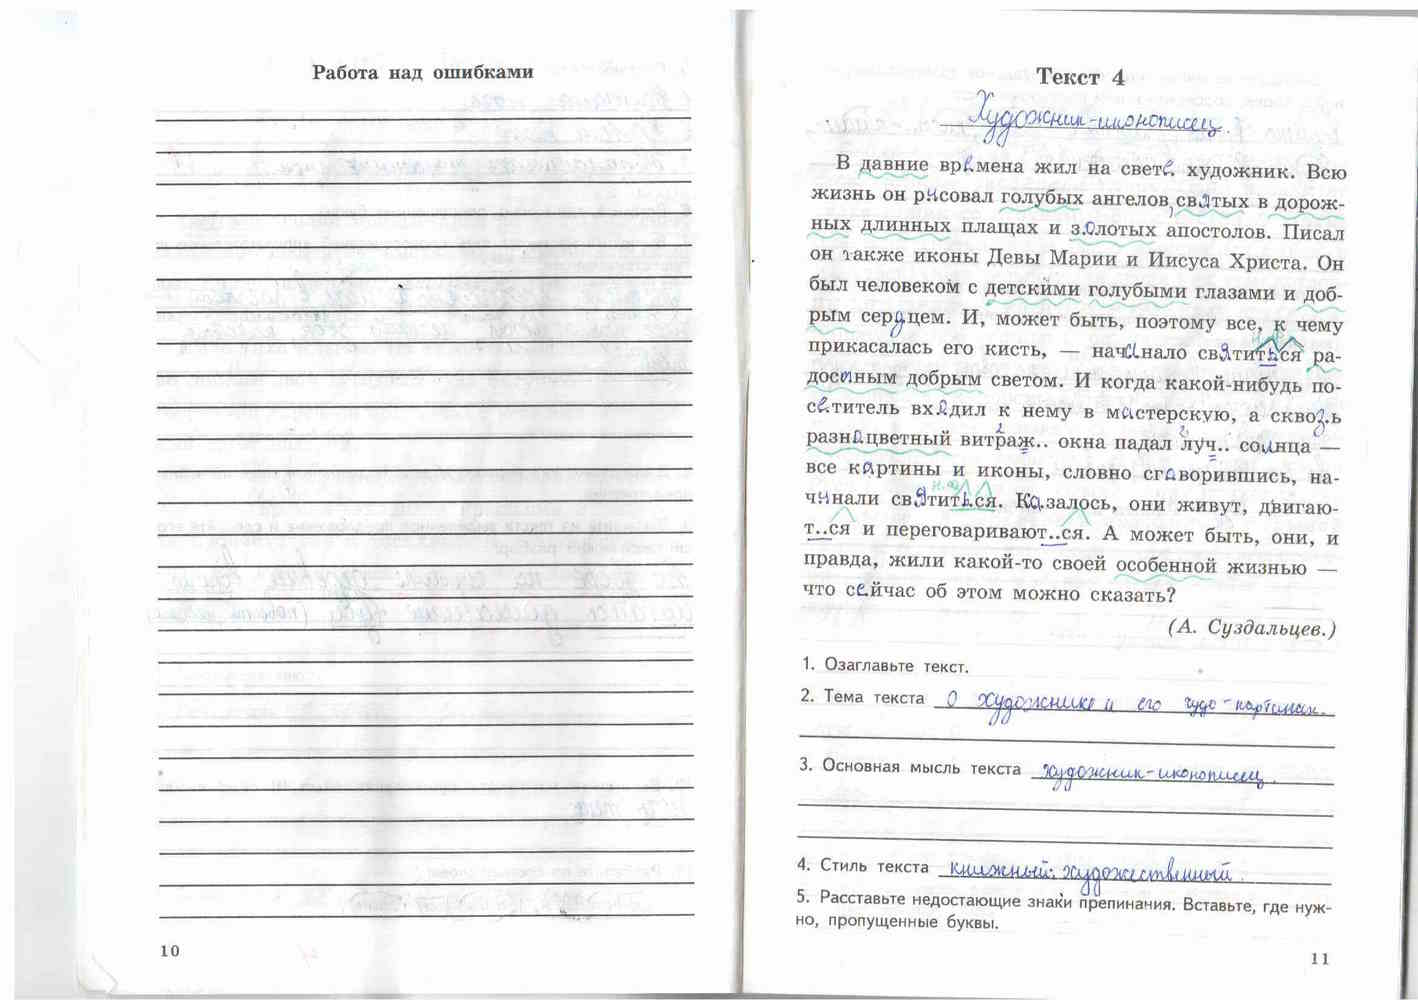 Работа над ошибками
10
Текст 4
Художник-иконописец.
В давние времена жил на свете художник. Всю
жизнь он рисовал голубых ангелов, святых в дорож-
ных длинных плащах и золотых апостолов. Писал
он также иконы Девы Марии и Иисуса Христа. Он
был человеком с детскими голубыми глазами и доб-
рым сердцем. И, может быть, поэтому все, к чему
прикасалась его кисть, — начинало святиться ра-
досным добрым светом. И когда какой-нибудь по-
сетитель входил к нему в мастерскую, а сквозь
разноцветный витраж.. окна падал луч.. солнца —
все картины и иконы, словно сговорившись, на-
чинали святиться. Казалось, они живут, двигаю-
т..ся и переговаривают..ся. А может быть, они, и
правда, жили какой-то своей особенной жизнью —
что сейчас об этом можно сказать?
(А. Суздальцев.)
1. Озаглавьте текст.
2. Тема текста О художнике и его чудо-картинах.
3. Основная мысль текста художник-иконописец.
4. Стиль текста книжный: художественный.
5. Расставьте недостающие знаки препинания. Вставьте, где нуж-
но, пропущенные буквы.
11